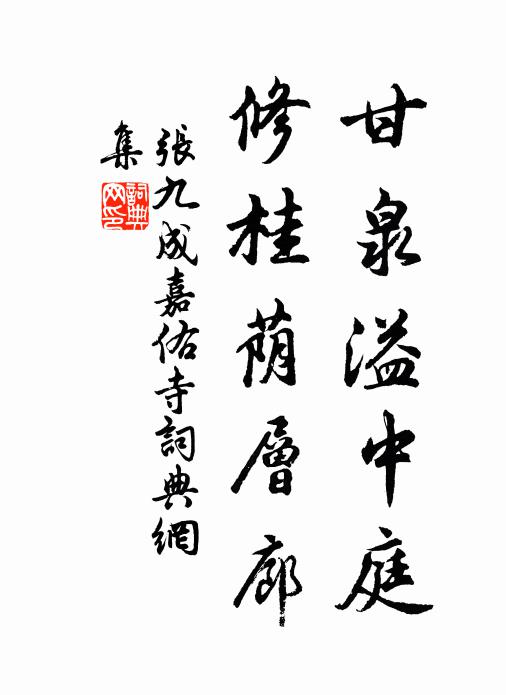 甘泉溢中庭
修桂荫層廊
張九成嘉佑寺詞典網
集
詞典
网印